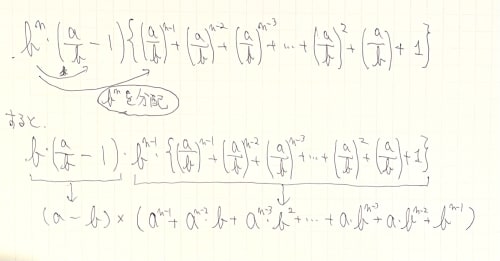 . b^n · (a/b - 1){(a/b)^{n-1} + (a/b)^{n-2} + (a/b)^{n-3} + … + (a/b)^2 + (a/b) + 1}
b^nを分配
すると、
b · (a/b - 1) · b^{n-1} · {(a/b)^{n-1} + (a/b)^{n-2} + (a/b)^{n-3} + … + (a/b)^2 + (a/b) + 1}
(a - b) × (a^{n-1} + a^{n-2}·b + a^{n-3}·b^2 + … + a·b^{n-3} + a·b^{n-2} + b^{n-1})